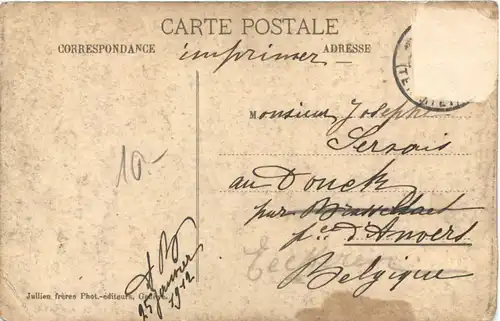 CARTE POSTALE
CORRESPONDANCE
imprimer
ADRESSE
Monsieur Joseph
Servais
au Donck
par Brasschaet
pce d'Anvers
Belgique
10.-
25 Janvier
1912
Jullien frères Phot.-éditeurs, Genève.